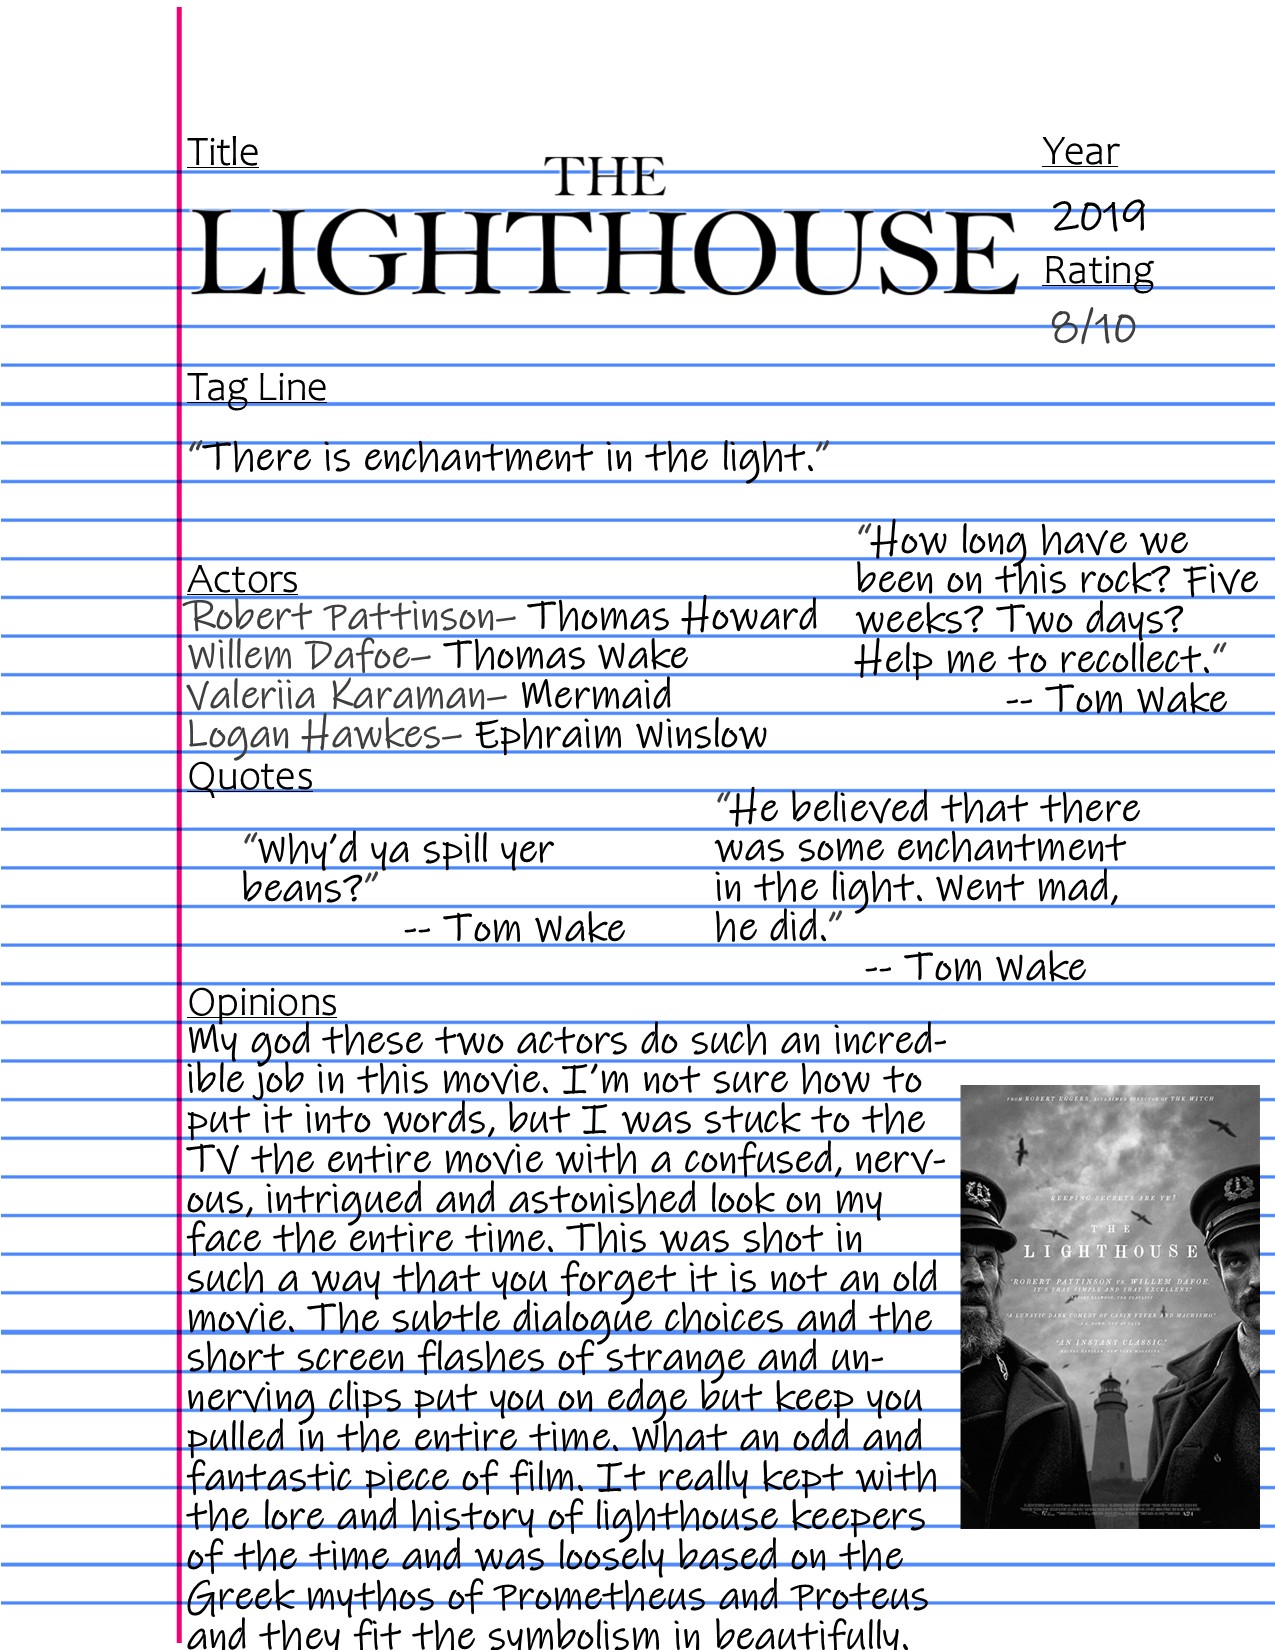 Title
THE
LIGHTHOUSE
Year
2019
Rating
8/10
Tag Line
“There is enchantment in the light.”
Actors
Robert Pattinson– Thomas Howard
Willem Dafoe– Thomas Wake
Valeriia Karaman– Mermaid
Logan Hawkes– Ephraim Winslow
“How long have we
been on this rock? Five
weeks? Two days?
Help me to recollect.”
-- Tom Wake
Quotes
“Why’d ya spill yer
beans?”
-- Tom Wake
“He believed that there
was some enchantment
in the light. Went mad,
he did.”
-- Tom Wake
Opinions
My god these two actors do such an incred-
ible job in this movie. I’m not sure how to
put it into words, but I was stuck to the
TV the entire movie with a confused, nerv-
ous, intrigued and astonished look on my
face the entire time. This was shot in
such a way that you forget it is not an old
movie. The subtle dialogue choices and the
short screen flashes of strange and un-
nerving clips put you on edge but keep you
pulled in the entire time. What an odd and
fantastic piece of film. It really kept with
the lore and history of lighthouse keepers
of the time and was loosely based on the
Greek mythos of Prometheus and Proteus
and they fit the symbolism in beautifully.
FROM ROBERT EGGERS, ACCLAIMED DIRECTOR OF THE WITCH
KEEPING SECRETS ARE YE?
THE
LIGHTHOUSE
"ROBERT PATTINSON vs. WILLEM DAFOE.
IT'S THAT SIMPLE AND THAT EXCELLENT."
"A LUNATIC DARK COMEDY OF CABIN FEVER AND MACHISMO"
"AN INSTANT CLASSIC."
A24